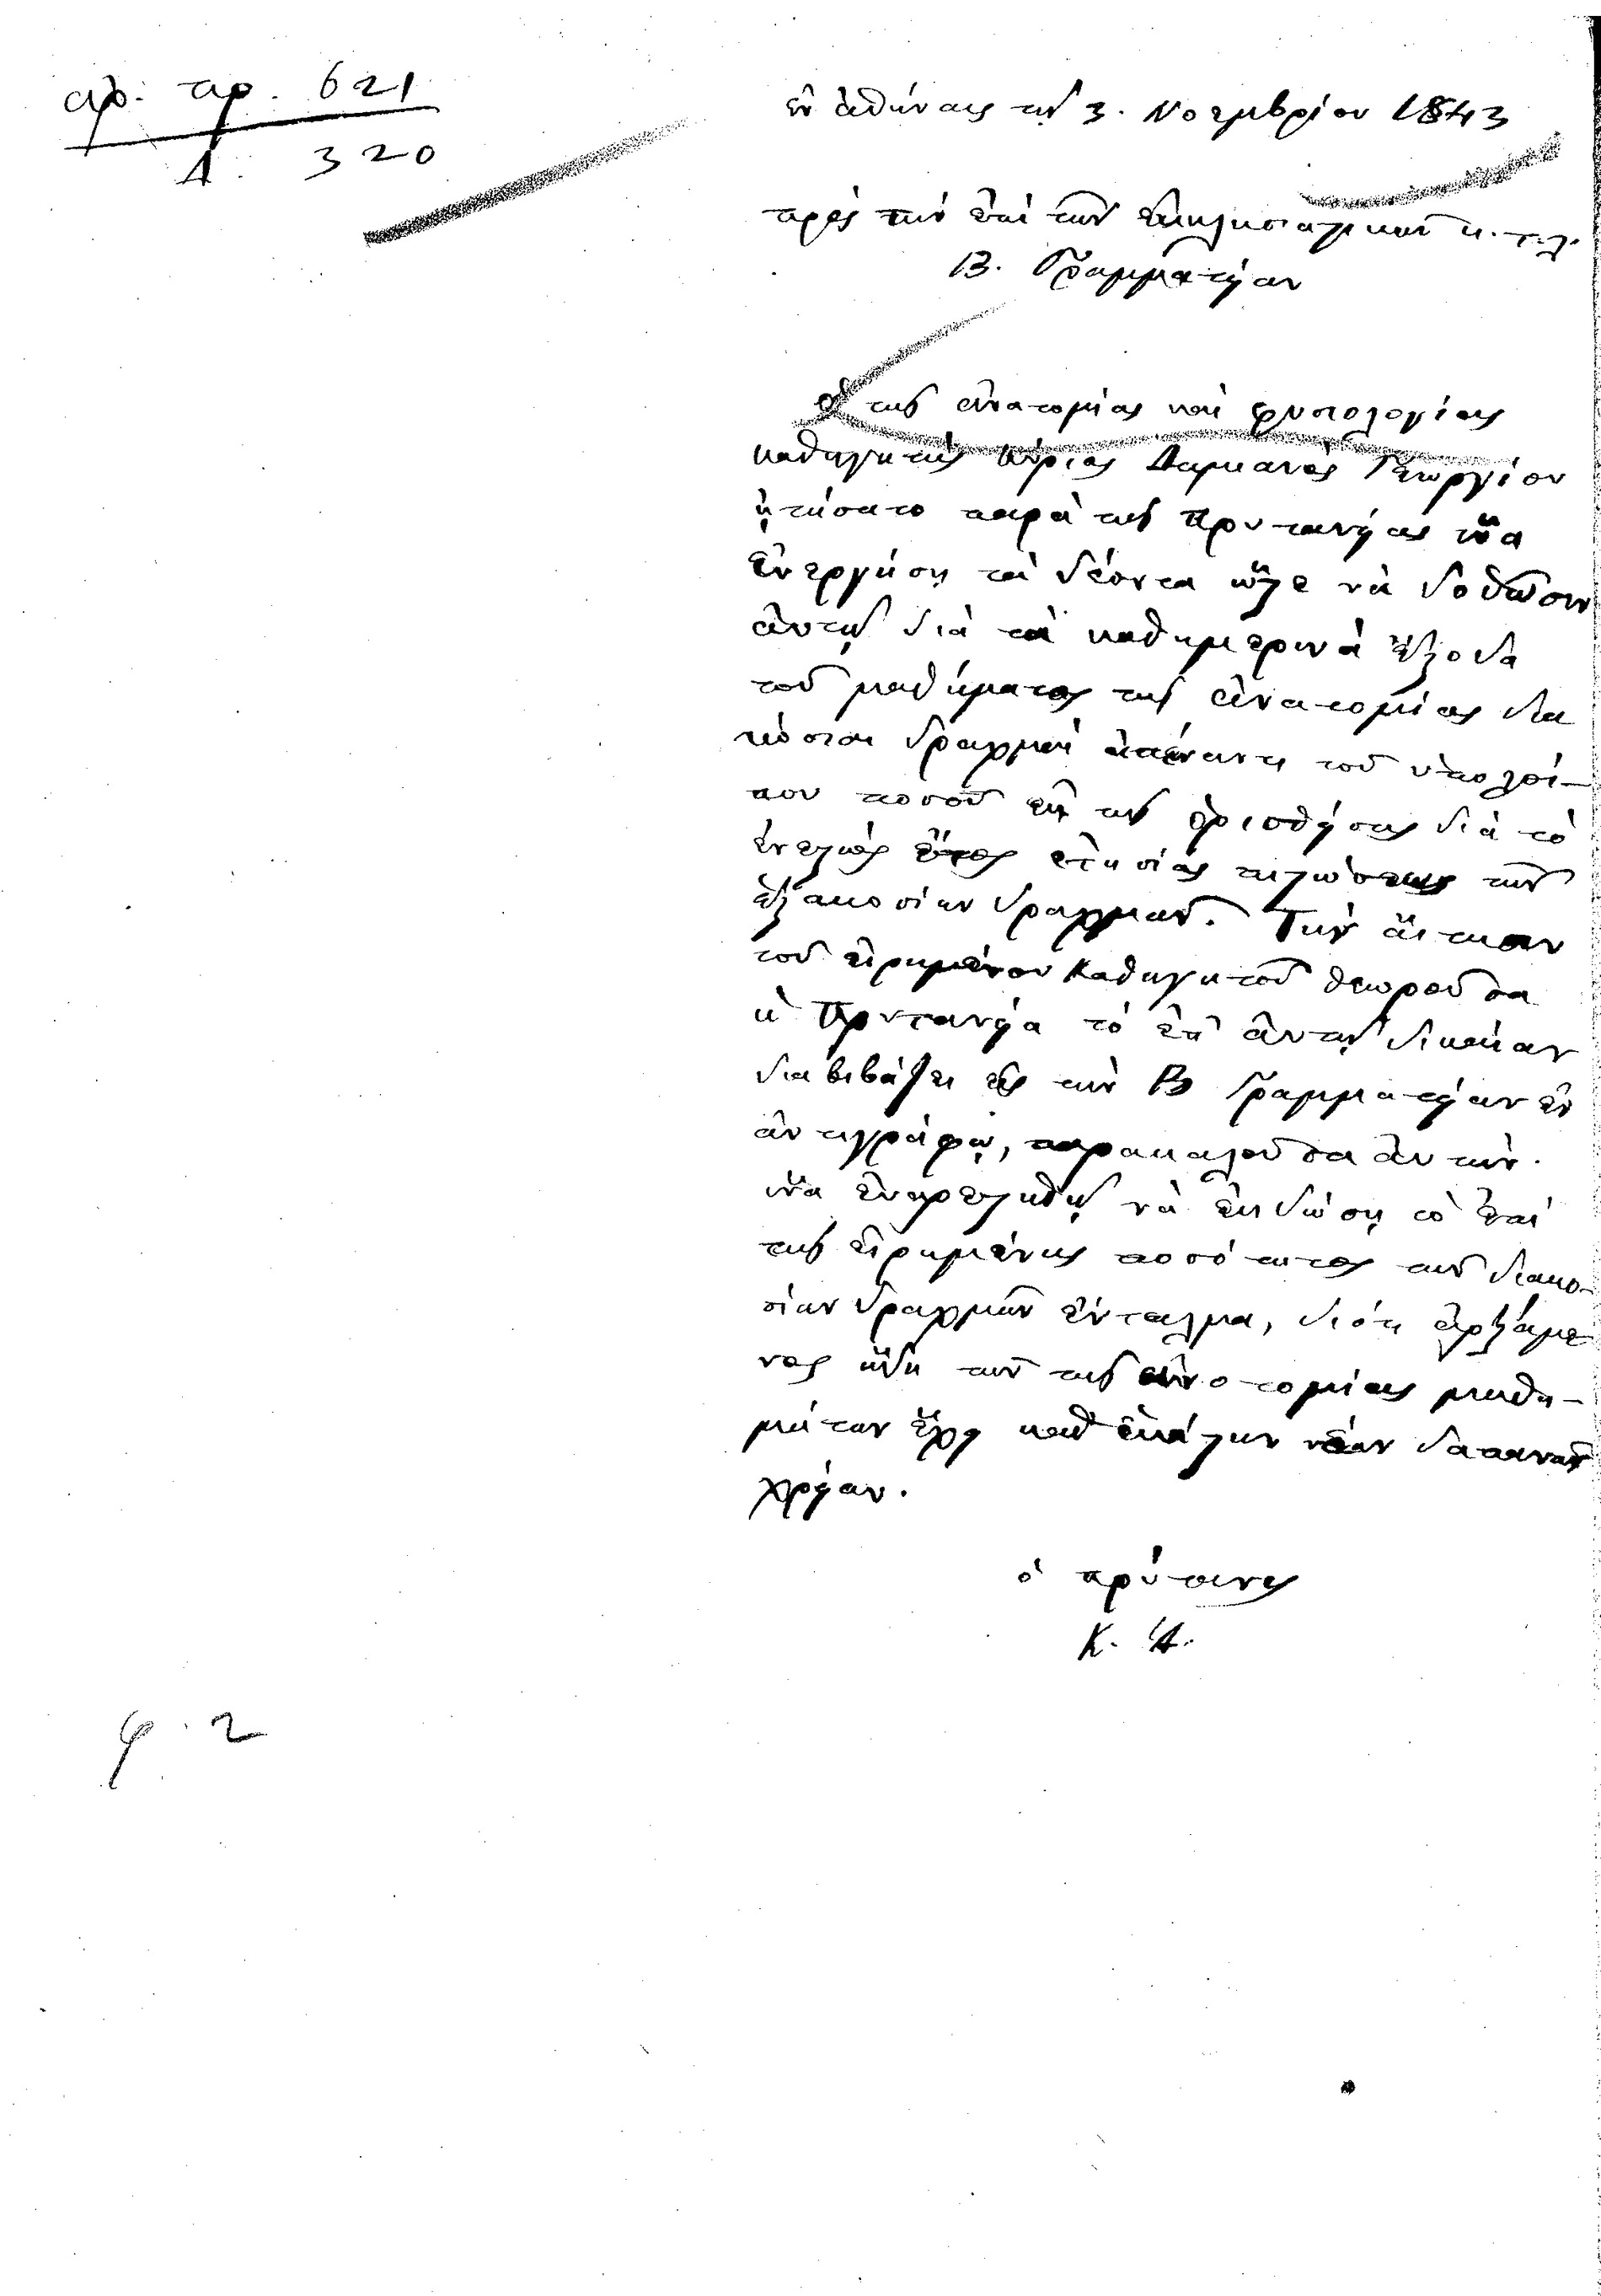 αρ. πρ. 621
Δ. 320
ἐν Ἀθήναις τῇ 3. Νοεμβρίου 1843
πρὸς τὴν ἐπὶ τῶν Ἐκκλησιαστικῶν κ.τ.λ.
Β. Γραμματείαν
Ὁ τῆς ἀνατομίας καὶ φυσιολογίας
καθηγητὴς Κύριος Δαμιανὸς Γεωργίου
ᾐτήσατο παρὰ τῆς Πρυτανείας ἵνα
ἐνεργήσῃ τὰ δέοντα ὥστε νὰ δοθῶσιν
αὐτῷ διὰ τὰ καθημερινὰ ἔξοδα
τοῦ μαθήματος τῆς ἀνατομίας δια
κόσιαι δραχμαὶ ἀπέναντι τοῦ ὑπολοί-
που ποσοῦ ἐκ τῆς ὁρισθείσης διὰ τὸ
ἐνεστὼς ἔτος ἐτησίας πιστώσεως τῶν
ἑξακοσίων δραχμῶν. Τὴν αἴτησιν
τοῦ εἰρημένου Καθηγητοῦ θεωροῦσα
ἡ Πρυτανεία τὸ ἐπ' αὐτῇ δικαίαν
διαβιβάζει εἰς τὴν Β Γραμματείαν ἐν
ἀντιγράφῳ, παρακαλοῦσα αὐτὴν
ἵνα εὐαρεστηθῇ νὰ ἐκδώσῃ τὸ ἐπὶ
τῆς εἰρημένης ποσότητος τῶν διακο-
σίων δραχμῶν ἔνταλμα, διότι ἀρξάμε
νος ἤδη τῶν τῆς ἀνατομίας μαθη-
μάτων ἔχει καθ' ἑκάστην νέων δαπανῶν
χρείαν.
ὁ πρύτανις
Κ. Ἀ.
φ. 2